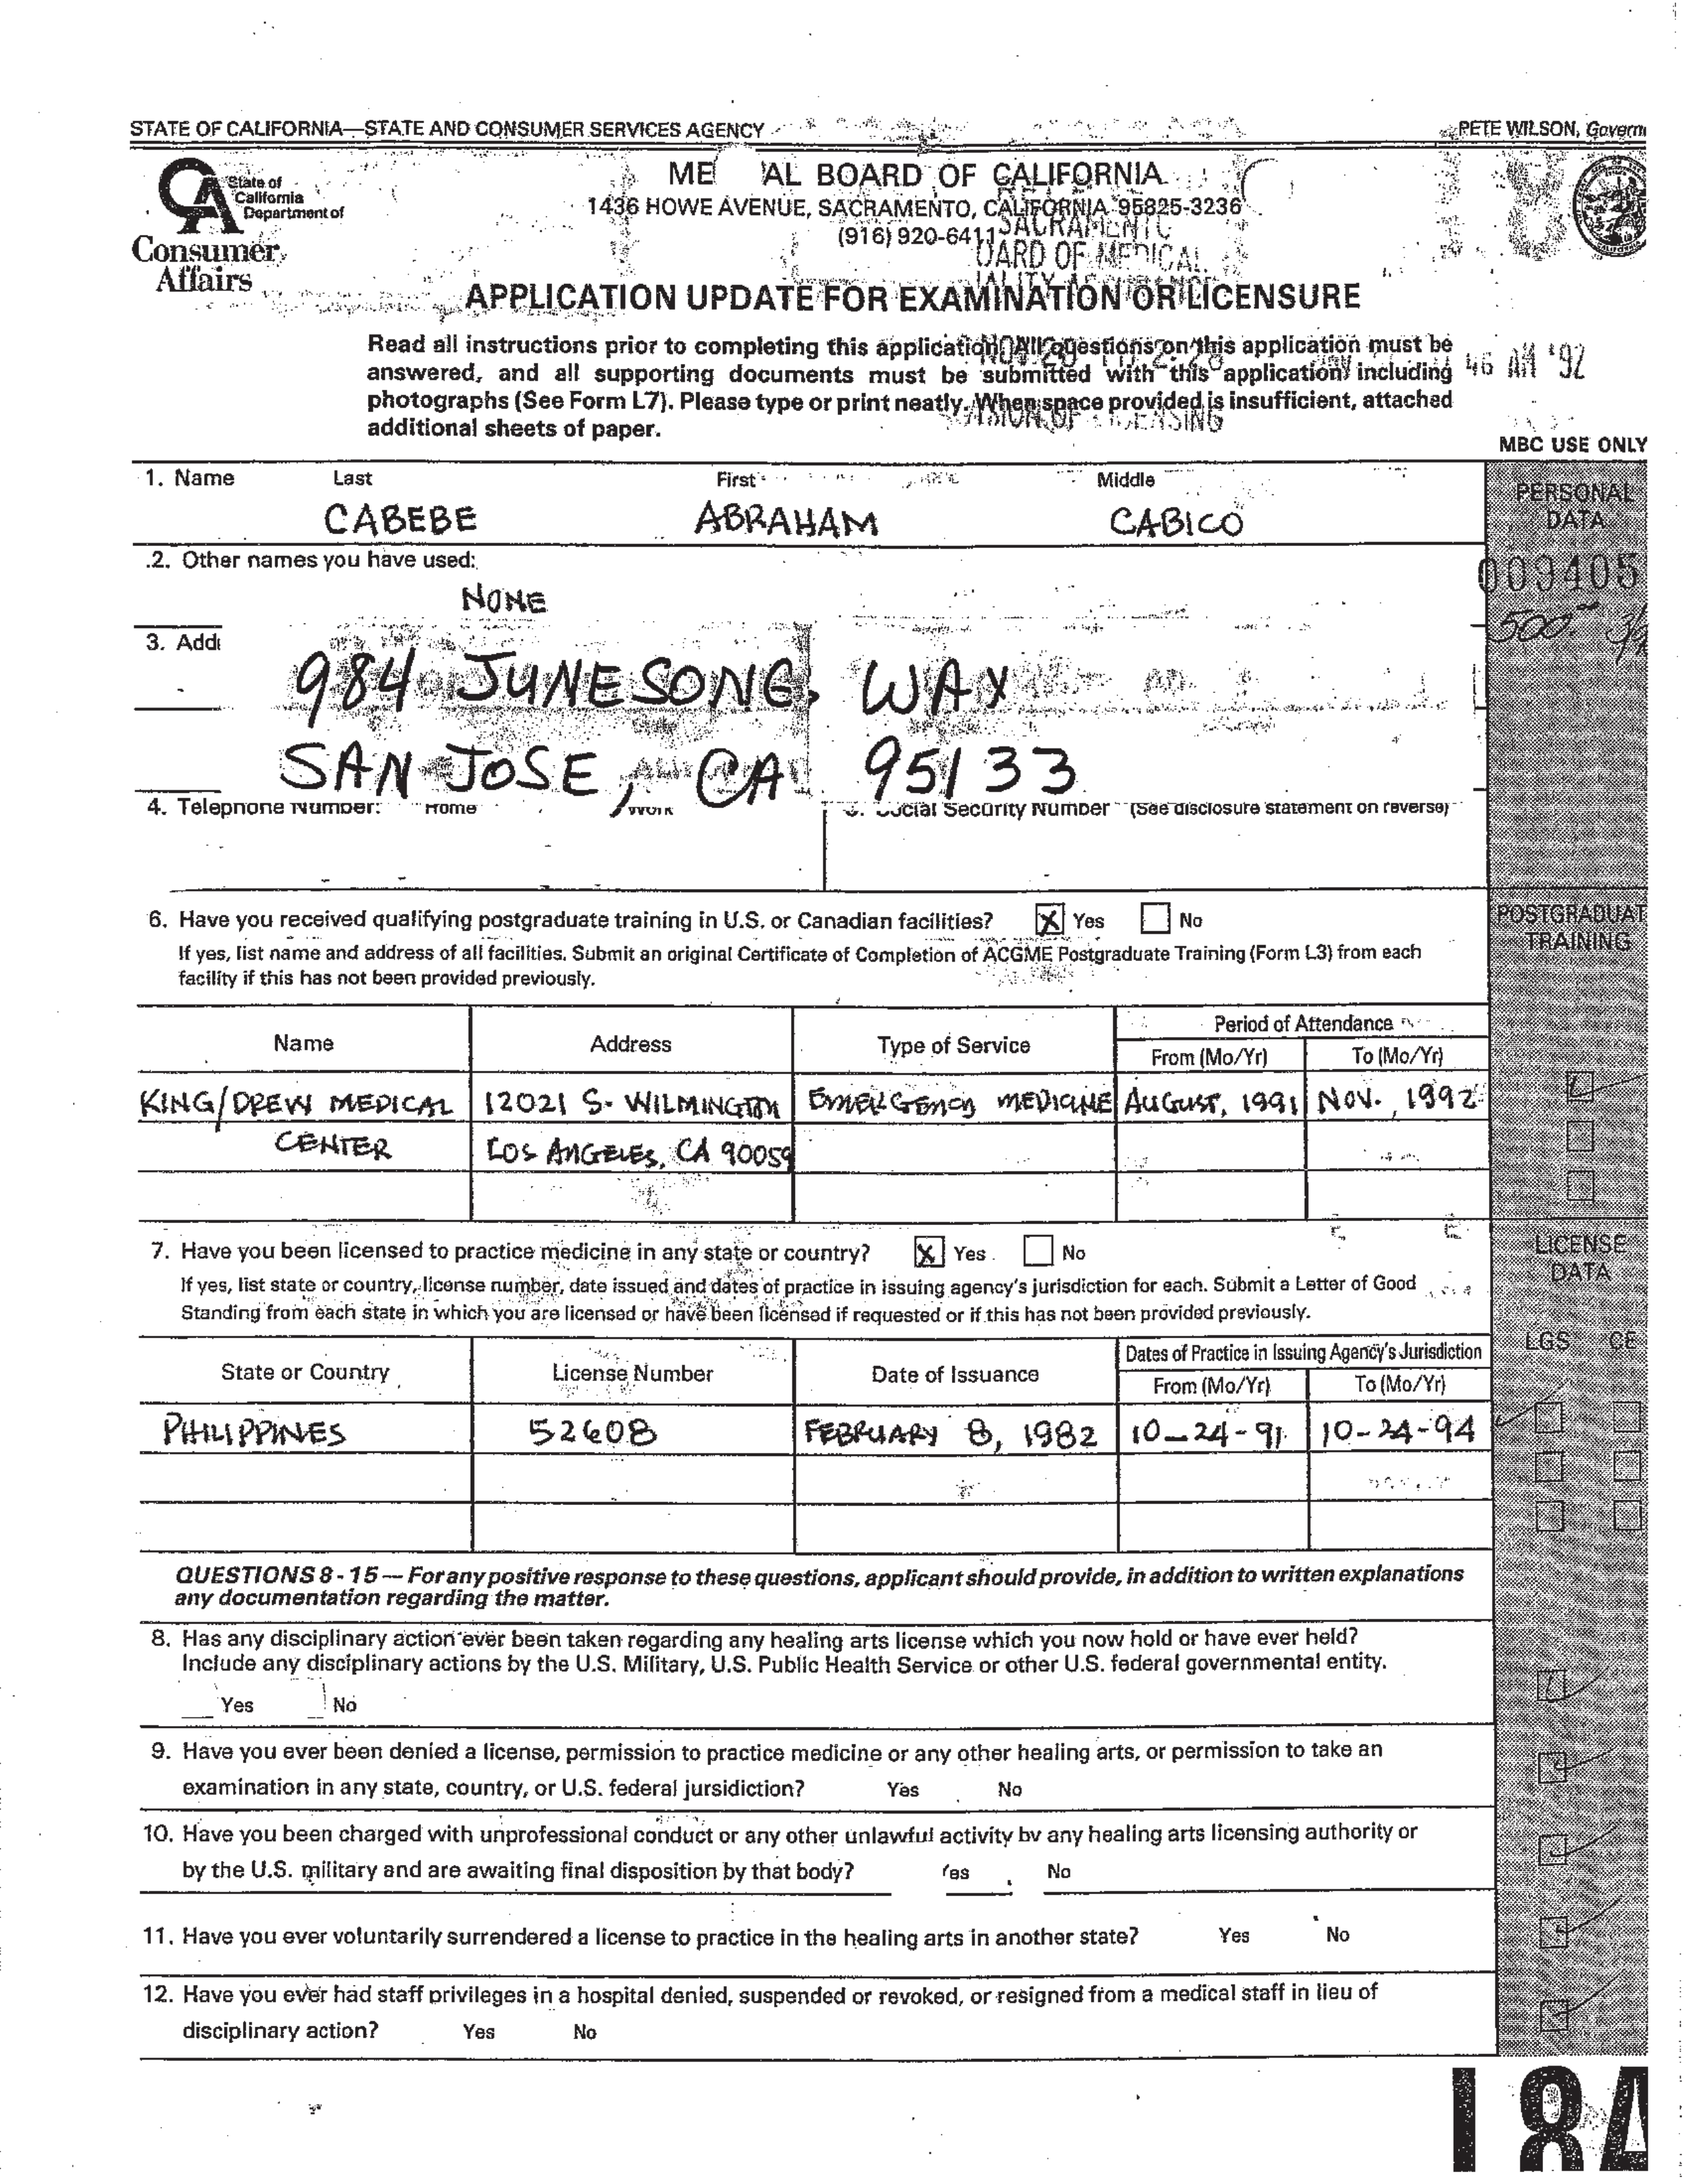 STATE OF CALIFORNIA—STATE AND CONSUMER SERVICES AGENCY PETE WILSON, Govern
State of
California
Department of
Consumer
Affairs
ME AL BOARD OF CALIFORNIA
1436 HOWE AVENUE, SACRAMENTO, CALIFORNIA 95825-3236
(916) 920-6411 SACRAMENTO
OARD OF MEDICAL
APPLICATION UPDATE FOR EXAMINATION OR LICENSURE
Read all instructions prior to completing this application. All questions on this application must be
answered, and all supporting documents must be submitted with this application including 46 AM '92
photographs (See Form L7). Please type or print neatly. When space provided is insufficient, attached
additional sheets of paper.
MBC USE ONLY
1. Name Last First Middle
CABEBE ABRAHAM CABICO
PERSONAL
DATA
2. Other names you have used:
NONE
009405
3. Add
984 JUNESONG WAY
SAN JOSE, CA 95133
4. Telephone Number: Home Work Social Security Number (See disclosure statement on reverse)
6. Have you received qualifying postgraduate training in U.S. or Canadian facilities? X Yes No
If yes, list name and address of all facilities. Submit an original Certificate of Completion of ACGME Postgraduate Training (Form L3) from each
facility if this has not been provided previously.
POSTGRADUAT
TRAINING
Name Address Type of Service Period of Attendance
From (Mo/Yr) To (Mo/Yr)
KING/DREW MEDICAL 12021 S. WILMINGTON EMERGENCY MEDICINE AUGUST, 1991 NOV., 1992
CENTER LOS ANGELES, CA 90059
7. Have you been licensed to practice medicine in any state or country? X Yes No
If yes, list state or country, license number, date issued and dates of practice in issuing agency's jurisdiction for each. Submit a Letter of Good
Standing from each state in which you are licensed or have been licensed if requested or if this has not been provided previously.
LICENSE
DATA
LGS CE
State or Country License Number Date of Issuance Dates of Practice in Issuing Agency's Jurisdiction
From (Mo/Yr) To (Mo/Yr)
PHILIPPINES 52608 FEBRUARY 8, 1982 10-24-91 10-24-94
QUESTIONS 8 - 15 — For any positive response to these questions, applicant should provide, in addition to written explanations
any documentation regarding the matter.
8. Has any disciplinary action ever been taken regarding any healing arts license which you now hold or have ever held?
Include any disciplinary actions by the U.S. Military, U.S. Public Health Service or other U.S. federal governmental entity.
Yes No
9. Have you ever been denied a license, permission to practice medicine or any other healing arts, or permission to take an
examination in any state, country, or U.S. federal jursidiction? Yes No
10. Have you been charged with unprofessional conduct or any other unlawful activity by any healing arts licensing authority or
by the U.S. military and are awaiting final disposition by that body? Yes No
11. Have you ever voluntarily surrendered a license to practice in the healing arts in another state? Yes No
12. Have you ever had staff privileges in a hospital denied, suspended or revoked, or resigned from a medical staff in lieu of
disciplinary action? Yes No
L8A